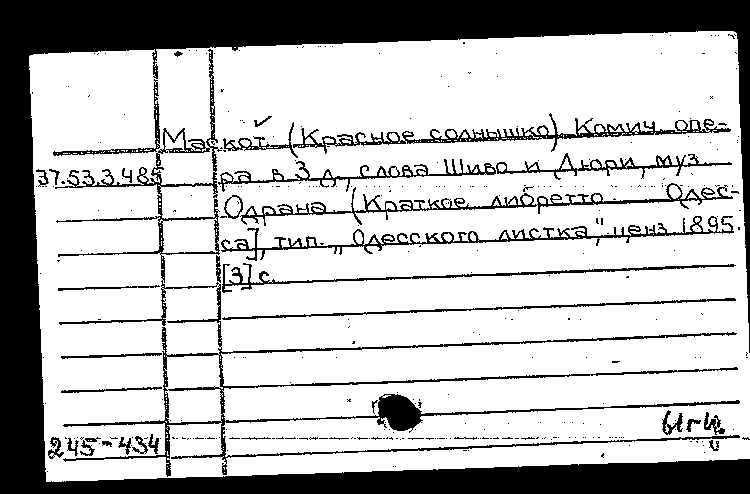 Маскот (Красное солнышко) Комич. опе-
37.53.3.485 ра в 3 д., слова Шиво и Дюри, муз.
Одрана. (Краткое либретто. Одес-
са], тип. „Одесского листка", ценз. 1895.
[3] с.
245-434